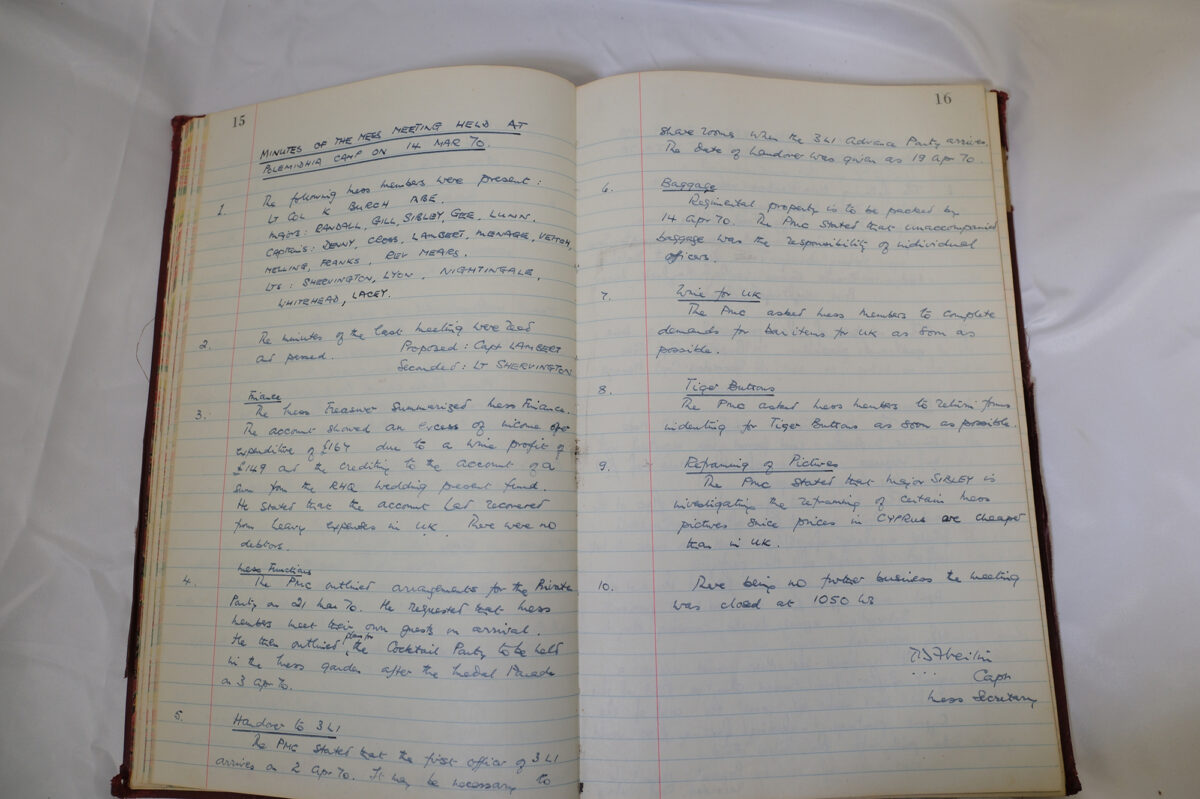 15
MINUTES OF THE MESS MEETING HELD AT
POLEMIDHIA CAMP ON 14 MAR 70.
1. The following mess members were present:
LT COL K BURCH MBE.
MAJORS: RANDALL, GILL, SIBLEY, GEE, LUNN.
CAPTAINS: DENNY, CROSS, LAMBERT, MENAGE, VEITCH,
MELLING, FRANKS, REV MEARS.
LTS: SHERVINGTON, LYON, NIGHTINGALE,
WHITEHEAD, LACEY.
2. The minutes of the last meeting were read
and passed. Proposed: Capt LAMBERT
Seconded: LT SHERVINGTON
Finance
3. The Mess Treasurer summarized Mess Finance.
The account showed an excess of income over
expenditure of £167 due to a wine profit of
£149 and the crediting to the account of a
sum from the RHQ wedding present fund.
He stated that the account had recovered
from heavy expenses in UK. There were no
debtors.
Mess Functions
4. The PMC outlined arrangements for the Private
Party on 21 Mar 70. He requested that mess
members meet their own guests on arrival.
He then outlined plans for the Cocktail Party to be held
in the mess garden after the Medal Parade
on 3 Apr 70.
5. Handover to 3 LI
The PMC stated that the first officer of 3 LI
arrives on 2 Apr 70. It may be necessary to
16
share rooms when the 3 LI Advance Party arrives.
The date of handover was given as 19 Apr 70.
6. Baggage
Regimental property is to be packed by
14 Apr 70. The PMC stated that unaccompanied
baggage was the responsibility of individual
officers.
7. Wine for UK
The PMC asked mess members to complete
demands for bar items for UK as soon as
possible.
8. Tiger Buttons
The PMC asked mess members to return forms
indenting for Tiger Buttons as soon as possible.
9. Reframing of Pictures
The PMC stated that Major SIBLEY is
investigating the reframing of certain mess
pictures since prices in CYPRUS are cheaper
than in UK.
10. There being no further business the meeting
was closed at 1050 hrs
Capt
Mess Secretary